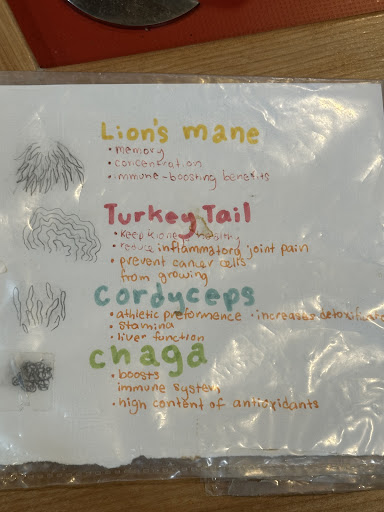 Lion's mane
• memory
• concentration
• immune-boosting benefits
Turkey Tail
• Keep kidney healthy
• reduce inflammatory joint pain
• prevent cancer cells
from growing
Cordyceps
• athletic preformence • increases detoxification
• stamina
• liver function
chaga
• boosts
immune system
• high content of antioxidants